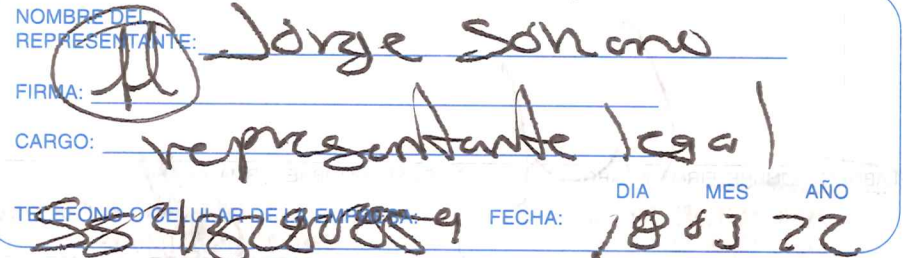 NOMBRE DEL
REPRESENTANTE: Jorge Soriano
FIRMA:
CARGO: representante legal
DIA MES AÑO
TELEFONO O CELULAR DE LA EMPRESA: FECHA: 18 03 22